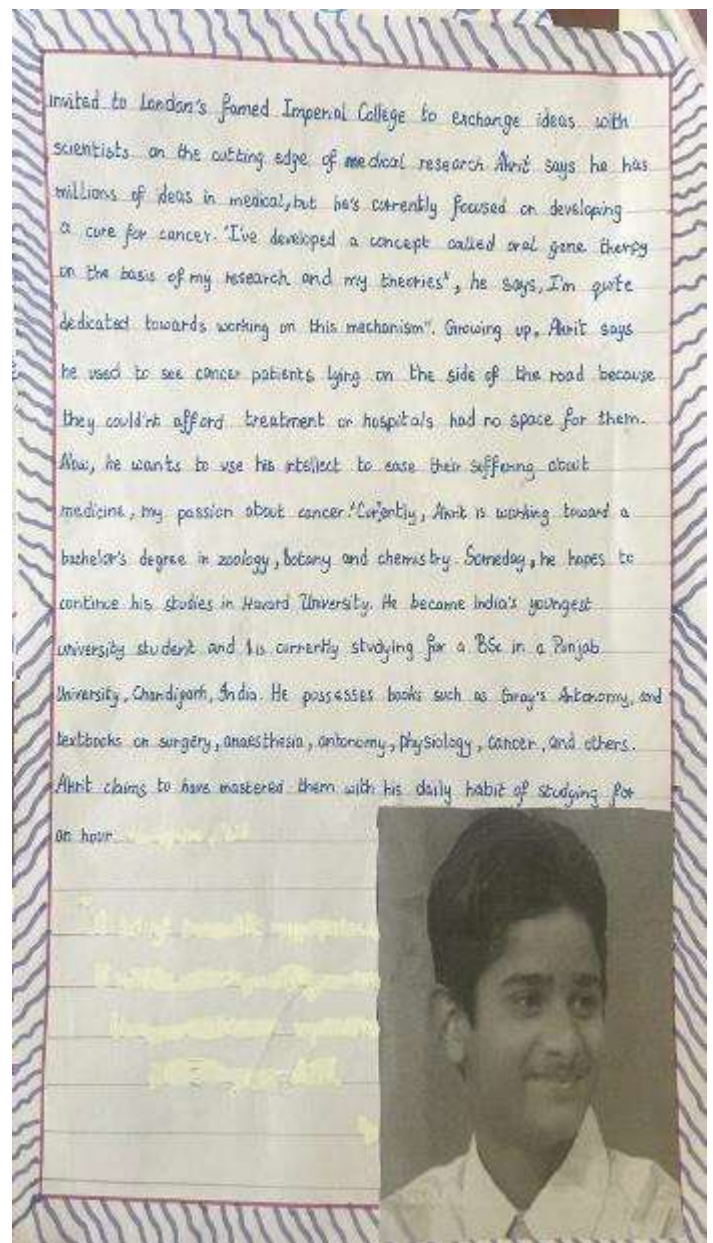 invited to London's famed Imperial College to exchange ideas with
scientists on the cutting edge of medical research Akrit says he has
millions of ideas in medical, but he's currently focused on developing
a cure for cancer. "I've developed a concept called oral gene therpy
on the basis of my research and my theories", he says, I'm quite
dedicated towards working on this mechanism". Growing up, Akrit says
he used to see cancer patients lying on the side of the road because
they could'nt afford treatment or hospitals had no space for them.
Now, he wants to use his intellect to ease their suffering about
medicine, my passion about cancer." Currently, Akrit is working toward a
bachelor's degree in zoology, botany and chemistry. Someday, he hopes to
continue his studies in Havard University. He became India's youngest
university student and is currently studying for a BSc in a Punjab
University, Chandigarh, India. He possesses books such as Gray's Antonomy, and
textbooks on surgery, anaesthesia, antonomy, physiology, cancer, and others.
Akrit claims to have mastered them with his daily habit of studying for
an hour